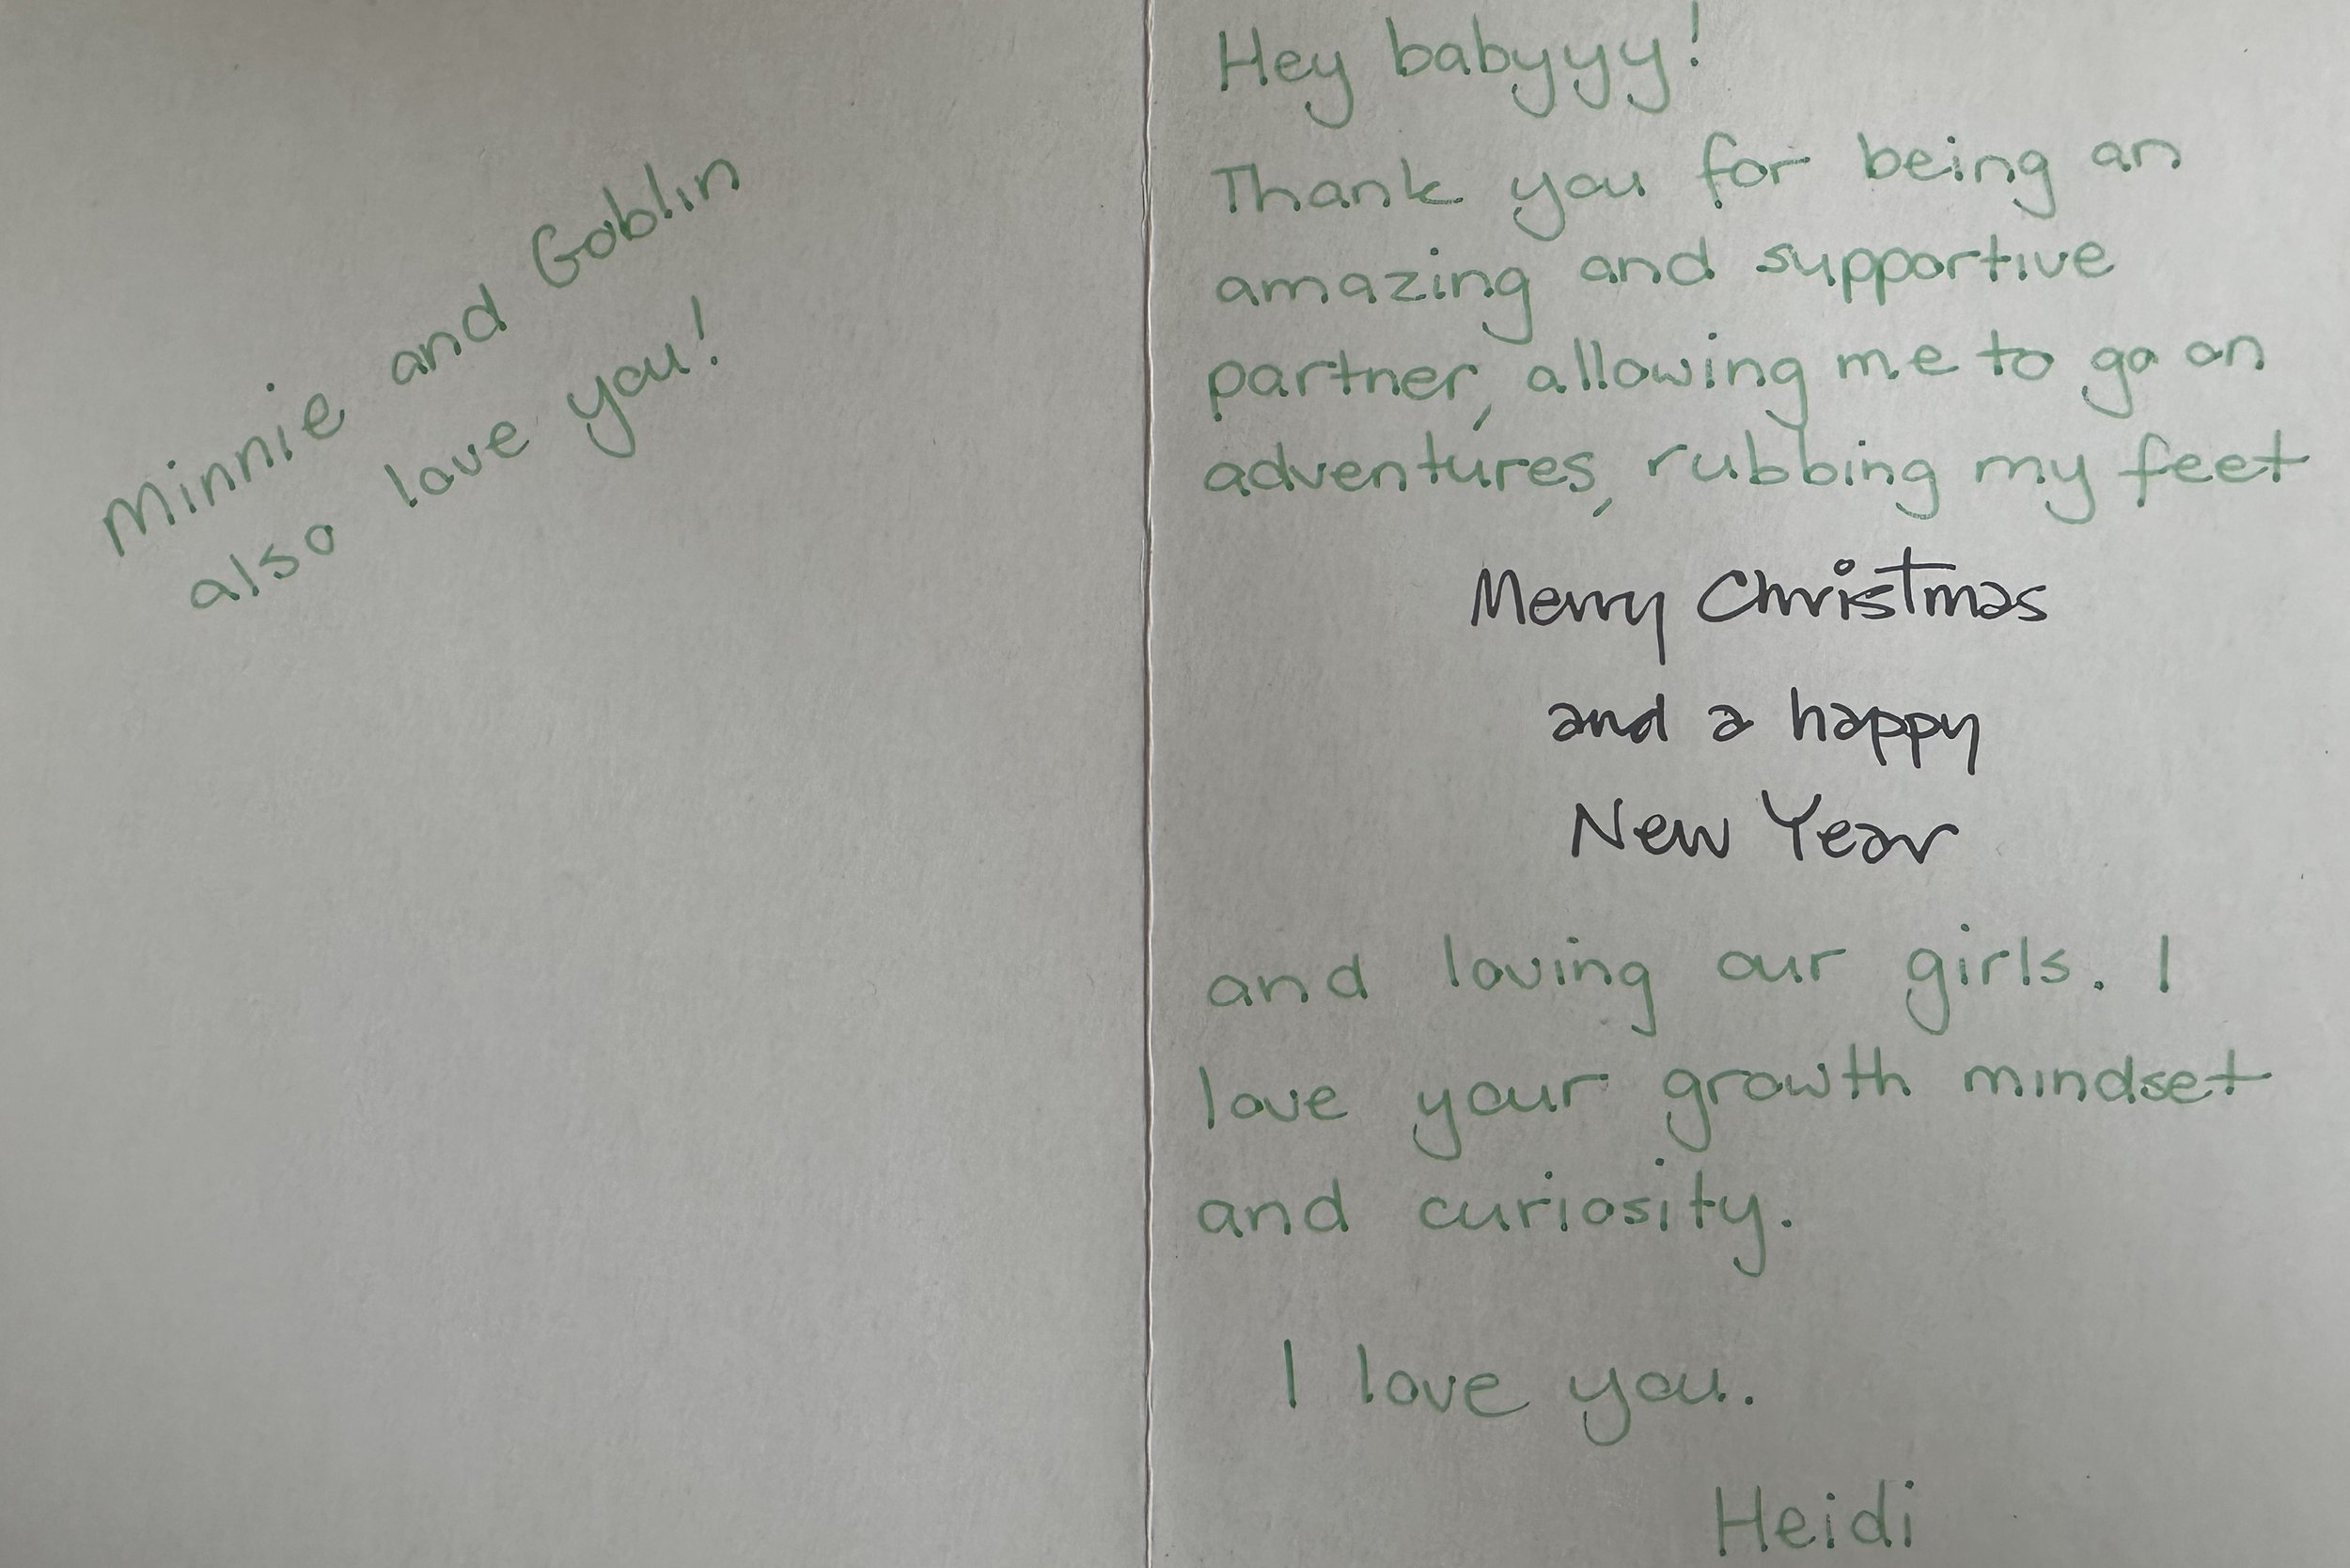 Minnie and Goblin
also love you!
Hey babyyy!
Thank you for being an
amazing and supportive
partner, allowing me to go on
adventures, rubbing my feet
Merry Christmas
and a happy
New Year
and loving our girls. I
love your growth mindset
and curiosity.
I love you.
Heidi